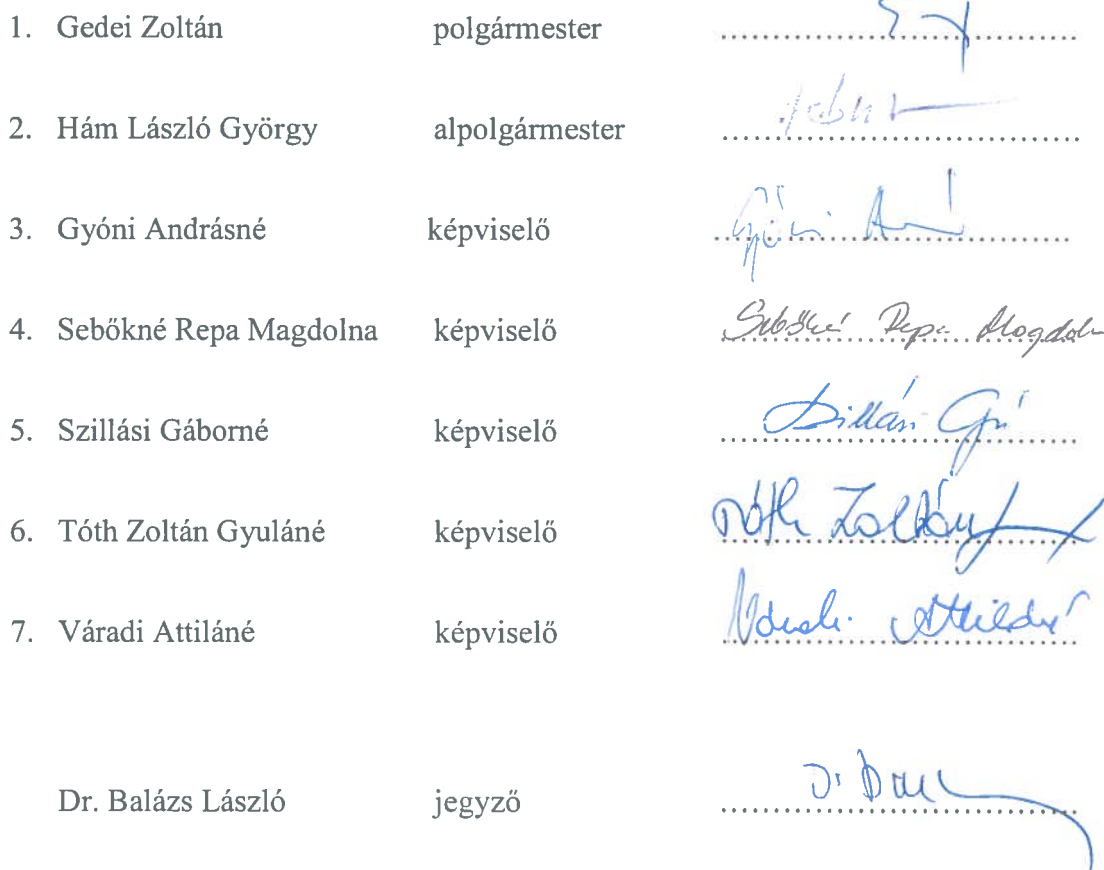 1. Gedei Zoltán polgármester
2. Hám László György alpolgármester
3. Gyóni Andrásné képviselő Gyóni
4. Sebőkné Repa Magdolna képviselő Sebőkné Repa Magdolna
5. Szillási Gáborné képviselő Szillási
6. Tóth Zoltán Gyuláné képviselő Tóth Zoltán
7. Váradi Attiláné képviselő Váradi Attiláné
Dr. Balázs László jegyző Dr